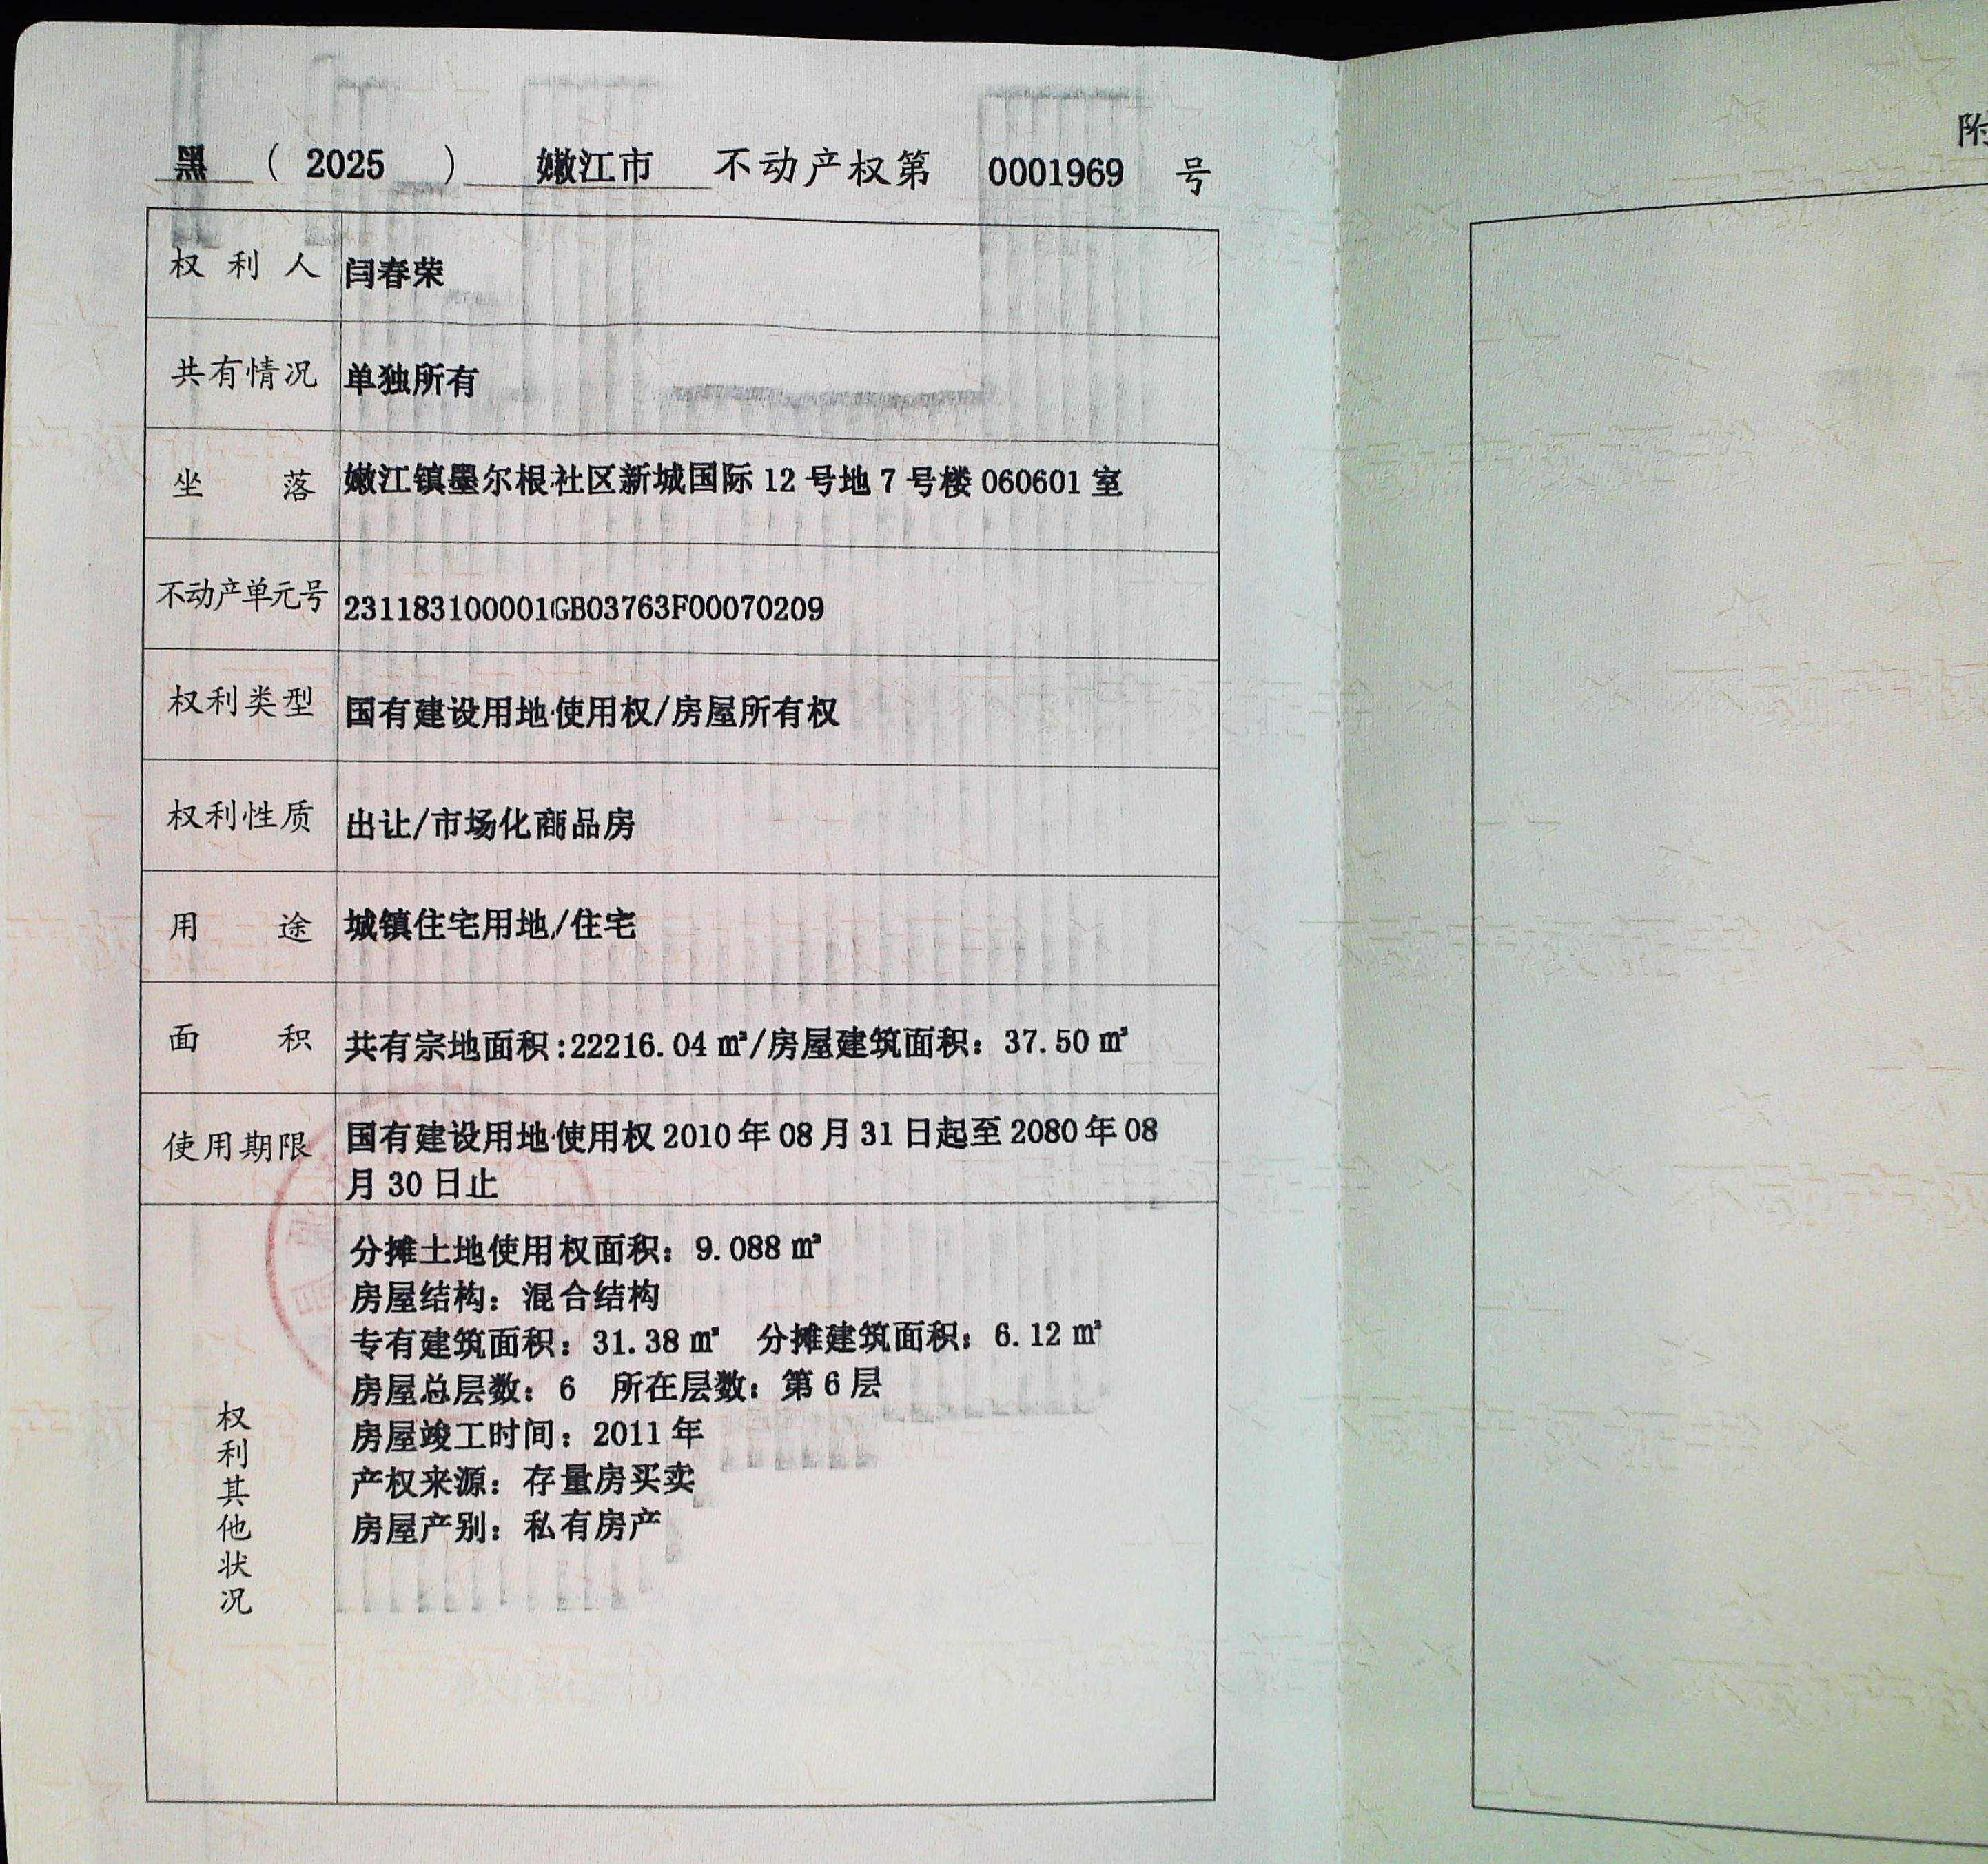 黑 ( 2025 ) 嫩江市 不动产权第 0001969 号
附
权利人 闫春荣
共有情况 单独所有
坐落 嫩江镇墨尔根社区新城国际12号地7号楼060601室
不动产单元号 231183100001GB03763F00070209
权利类型 国有建设用地使用权/房屋所有权
权利性质 出让/市场化商品房
用途 城镇住宅用地/住宅
面积 共有宗地面积:22216.04㎡/房屋建筑面积：37.50㎡
使用期限 国有建设用地使用权2010年08月31日起至2080年08
月30日止
权利其他状况
分摊土地使用权面积：9.088㎡
房屋结构：混合结构
专有建筑面积：31.38㎡ 分摊建筑面积：6.12㎡
房屋总层数：6 所在层数：第6层
房屋竣工时间：2011年
产权来源：存量房买卖
房屋产别：私有房产